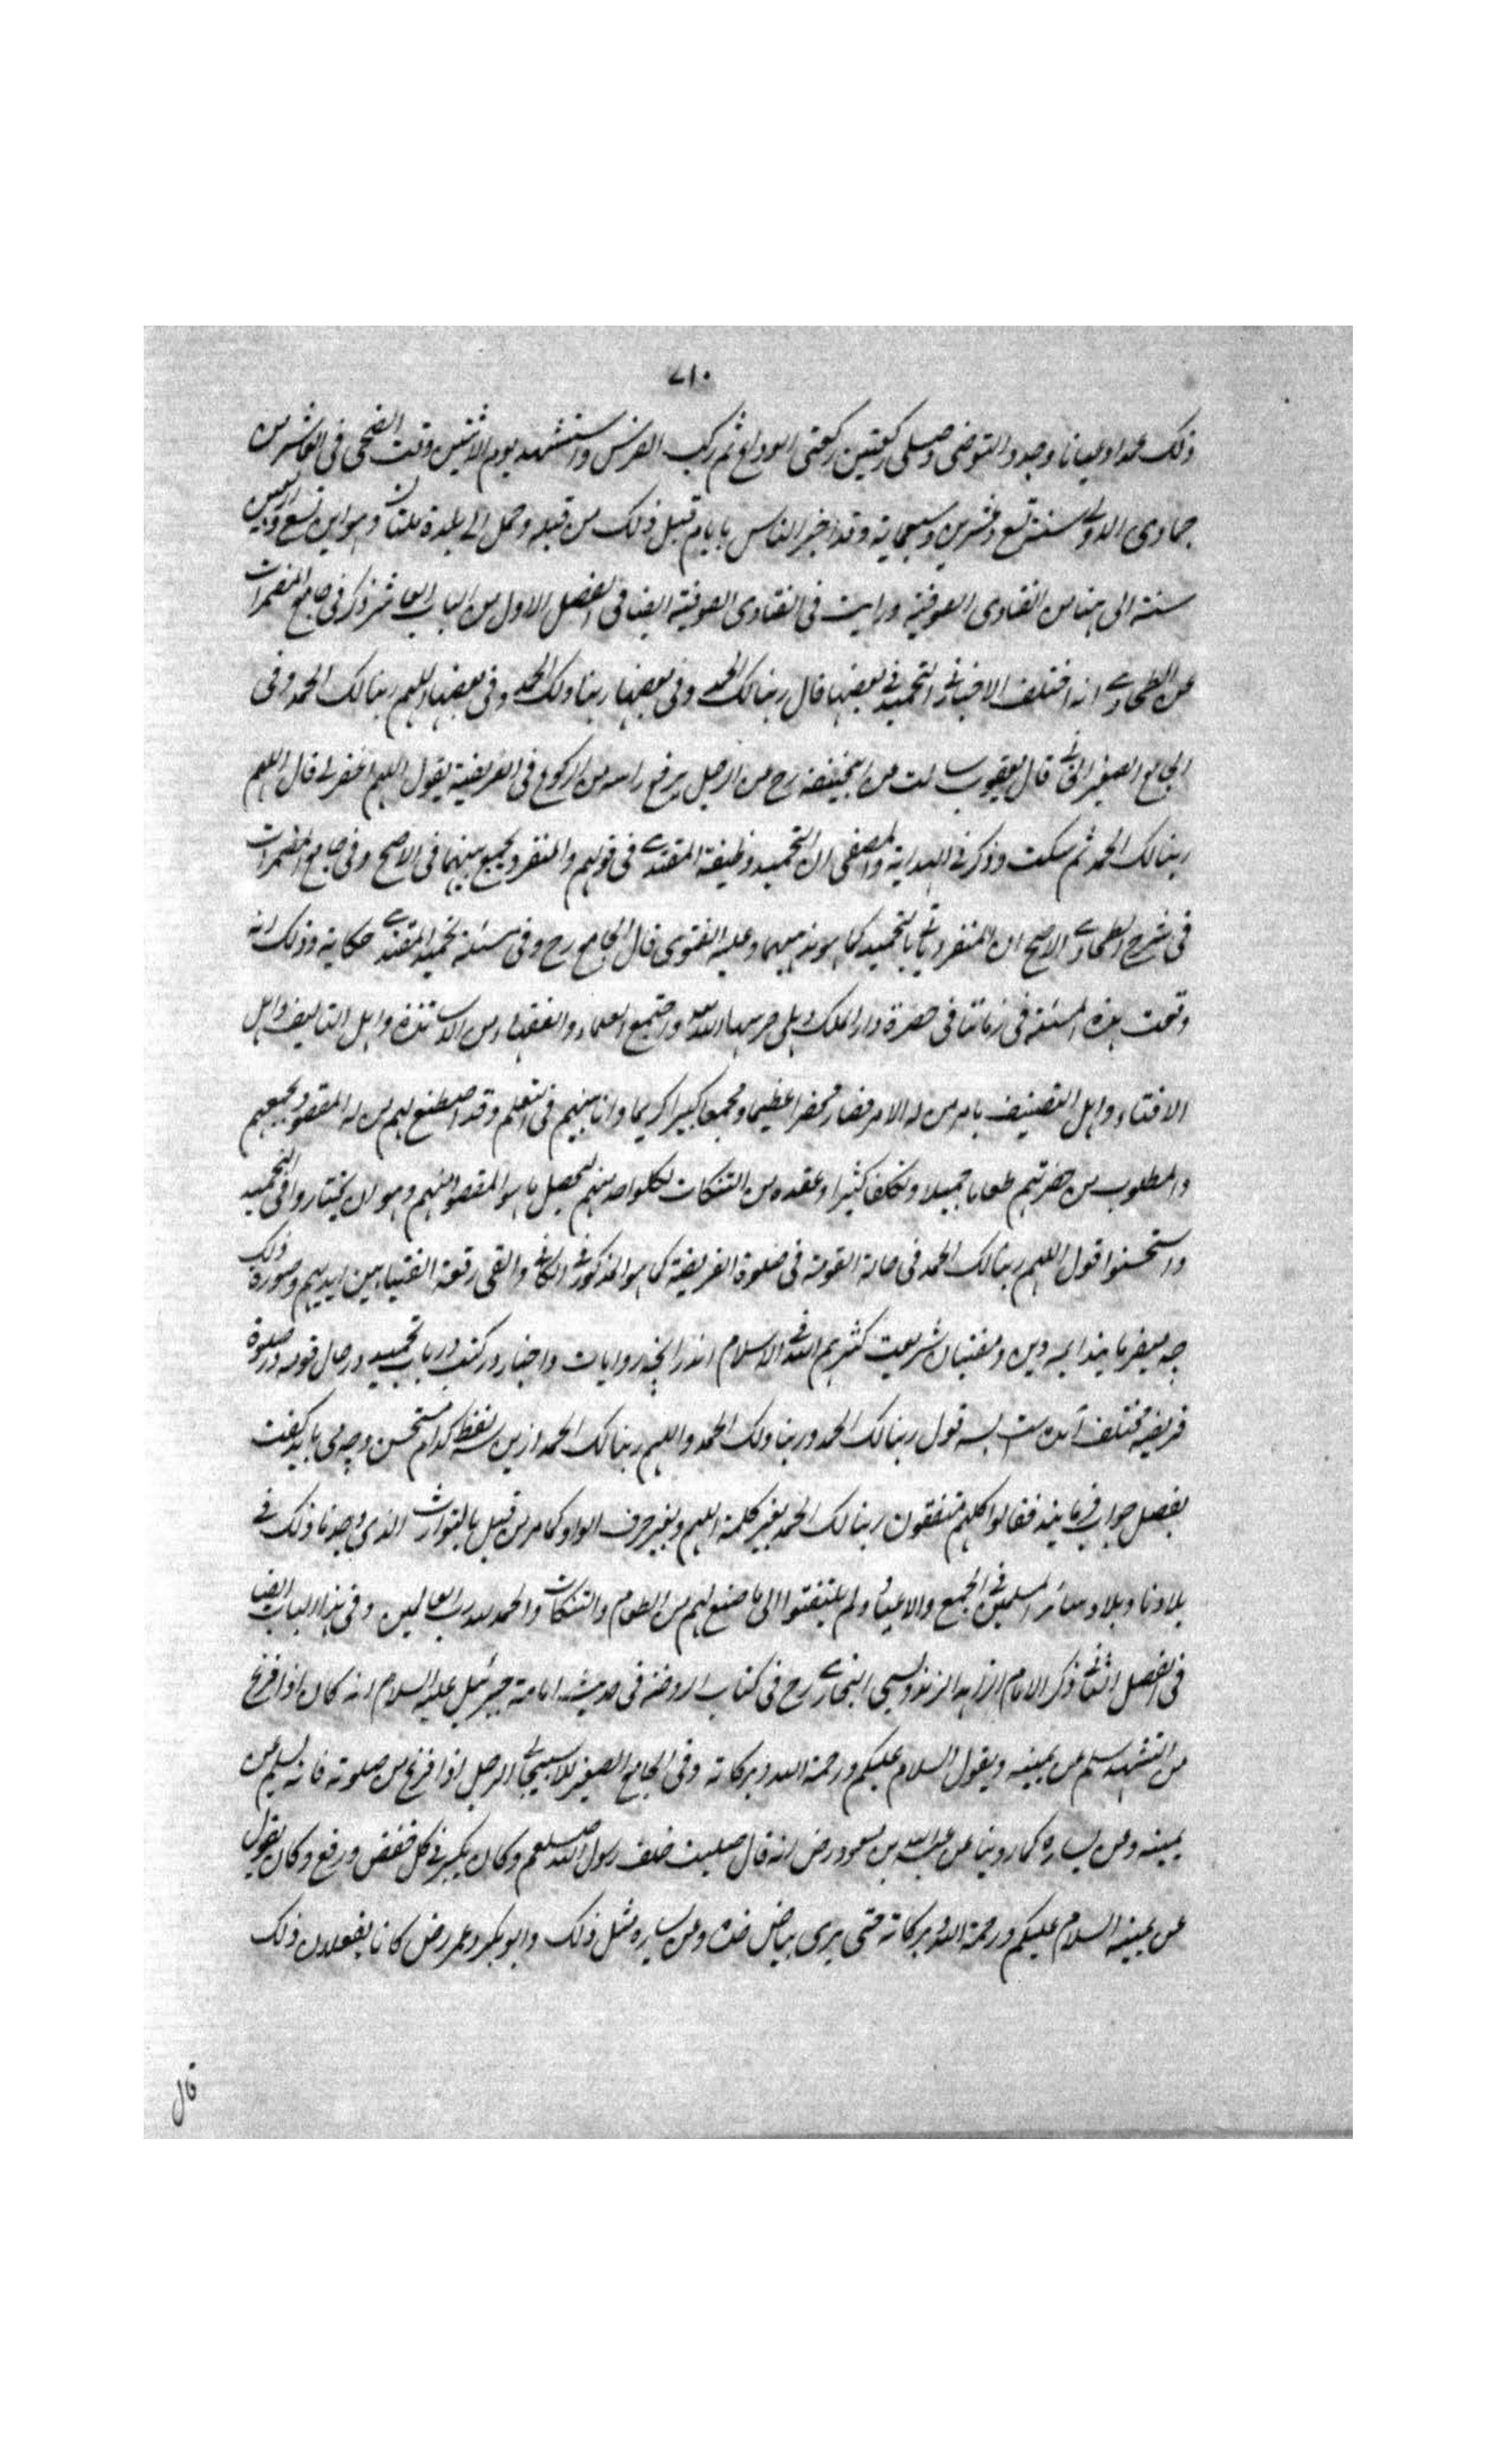 ۷۱۰
ذلك عمدا وعيانا وجدد التوضى وصلى ركعتين ركعتى الوداع ثم ركب الفرس واستشهد يوم الاثنين وقت الضحى فى العاشر من
جمادى الاولى سنة تسع وعشرين وسبعماية وقد اخبر الناس بايام قبل ذلك من قبله وحمل الى بلدة ملتان وهو ابن تسع واربعين
سنة الى هنا من الفتاوى الصوفية ورايت فى الفتاوى الصوفية ايضا فى الفصل الاول من الباب العاشر ذكر فى جامع المضمرات
عن الطحاوے انه اختلف الاخبار فى التحميد فى بعضها قال ربنا لك الحمد وفى بعضها ربنا ولك الحمد وفى بعضها اللهم ربنا لك الحمد وفى
الجامع الصغير الخانے قال يعقوب سالت من ابيحنيفة رح من الرجل يرفع راسه من الركوع فى الفريضة يقول اللهم اغفر لى قال اللهم
ربنا لك الحمد ثم سكت وذكر فى الهداية والمصفى ان التحميد وظيفة المقتدے فى قولهم والمنفرد يجمع بينهما فى الاصح وفى جامع المضمرات
فى شرح الطحاوے الاصح ان المنفرد ياتى بالتحميد كما هو مذهبهما وعليه الفتوى قال الجامع رح وفى مسئلة تحميد المقتدے حكاية وذلك انه
وقعت هذه المسئلة فى زماننا فى حضرة دار الملك دهلى حرسها الله واجتمع العلماء والفقهاء من الاساتذة واهل التاليف واهل
الافتاء واهل التصنيف بامر من له الامر فصار محضرا عظيما ومجمعا كبيرا كريما وانا بينهم فى التعلم وقد اصطنع لهم من له المقصود بجمعهم
والمطلوب من حضرتهم طعاما جميلا وتكلفا كثيرا وعقده من التنكات لكل واحد منهم ليحصل ما هو المقصود منهم وهو ان يختاروا فى التحميد
واستحسنوا قول اللهم ربنا لك الحمد فى حالة القومة فى صلوة الفريضة كما هو المذكور فى الكافى والقى رقعة الفتيا بين ايديهم وصورة ذلك
چه ميفرمايند ايمه دين ومفتيان شريعت كثرهم الله فى الاسلام اندر انچه روايات واخبار در كتب در باب تحميد در حال قومه در صلوة
فريضه مختلف آمده ست بسه قول ربنا لك الحمد وربنا ولك الحمد واللهم ربنا لك الحمد ازين سه لفظ كدام مستحسن وچه مى بايد گفت
بفصل جواب فرمايند فقالوا كلهم متفقون ربنا لك الحمد بغير كلمة اللهم وبغير حرف الواو كما مر من قبل بالتوارث الذى وجدنا ذلك فى
بلادنا وبلاد سائر المسلمين فى الجمع والاعياد ولم يلتفتوا الى ما صنع لهم من الطعام والتنكات والحمد لله رب العالمين وفى هذا الباب ايضا
فى الفصل الثانى ذكر الامام الزاهد الزندوبسى البخارے رح فى كتاب الروضة فى حديث امامة جبرئيل عليه السلام انه كان اذا فرغ
من التشهد سلم عن يمينه ويقول السلام عليكم ورحمة الله وبركاته وفى الجامع الصغير للاسبيجابى الرجل اذا فرغ من صلوته فانه يسلم عن
يمينه وعن يساره كما روينا عن عبد الله بن مسعود رض انه قال صليت خلف رسول الله صلعم وكان يكبر فى كل خفض ورفع وكان يقول
عن يمينه السلام عليكم ورحمة الله وبركاته حتى يرى بياض خده وعن يساره مثل ذلك وابو بكر وعمر رض كانا يفعلان ذلك
قال